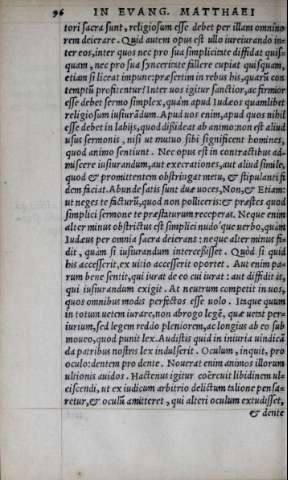 96 IN EVANG. MATTHAEI
tori sacra sunt, religiosum esse debet per illam omnino
rem deierare. Quid autem opus est ullo iureiurando in
ter eos, inter quos nec pro sua simplicitate diffidat quisq̃
quam, nec pro sua synceritate fallere cupiat quisquam,
etiam si liceat impune: præsertim in rebus his, quarũ con
temptũ profitentur? Inter uos igitur sanctior, ac firmior
esse debet sermo simplex, quàm apud Iudæos quamlibet
religiosum iusiurãdum. Apud uos enim, apud quos nihil
esse debet in labijs, quod dißideat ab animo: non est aliud
usus sermonis, nisi ut mutuo sibi significent homines,
quod animo sentiunt. Nec opus est in contractibus ad-
miscere iusiurandum, aut execrationes, aut aliud simile,
quod & promittentem obstringat metu, & stipulanti fi
dem faciat. Abunde satis sunt duæ uoces, Non, & Etiam:
ut neges te facturũ, quod non polliceris: & præstes quod
simplici sermone te præstaturum receperas. Neque enim
alter minus obstrictus est simplici nudoq́ue uerbo, quàm
Iudæus per omnia sacra deierans: neque alter minus fi-
dit, quàm si iusiurandum intercessisset. Quòd si quid
his accesserit, ex uitio accesserit oportet. Aut enim pa-
rum bene sentit, qui iurat de eo cui iurat: aut diffidit is,
qui iusiurandum exigit. At neutrum competit in uos,
quos omnibus modis perfectos esse uolo. Itaque quum
in totum uetem iurare, non abrogo legẽ, quæ uetat per-
iurium, sed legem reddo pleniorem, ac longius ab eo sub
moueo, quod punit lex. Audistis quid in iniuria uindicã
da patribus nostris lex indulserit. Oculum, inquit, pro
oculo: dentem pro dente. Nouerat enim animos illorum
ultionis auidos. Hactenus igitur coërcuit libidinem ul-
ciscendi, ut ex iudicum arbitrio delictum talione pensa-
retur, & oculũ amitteret, qui alteri oculum extudisset,
& dente